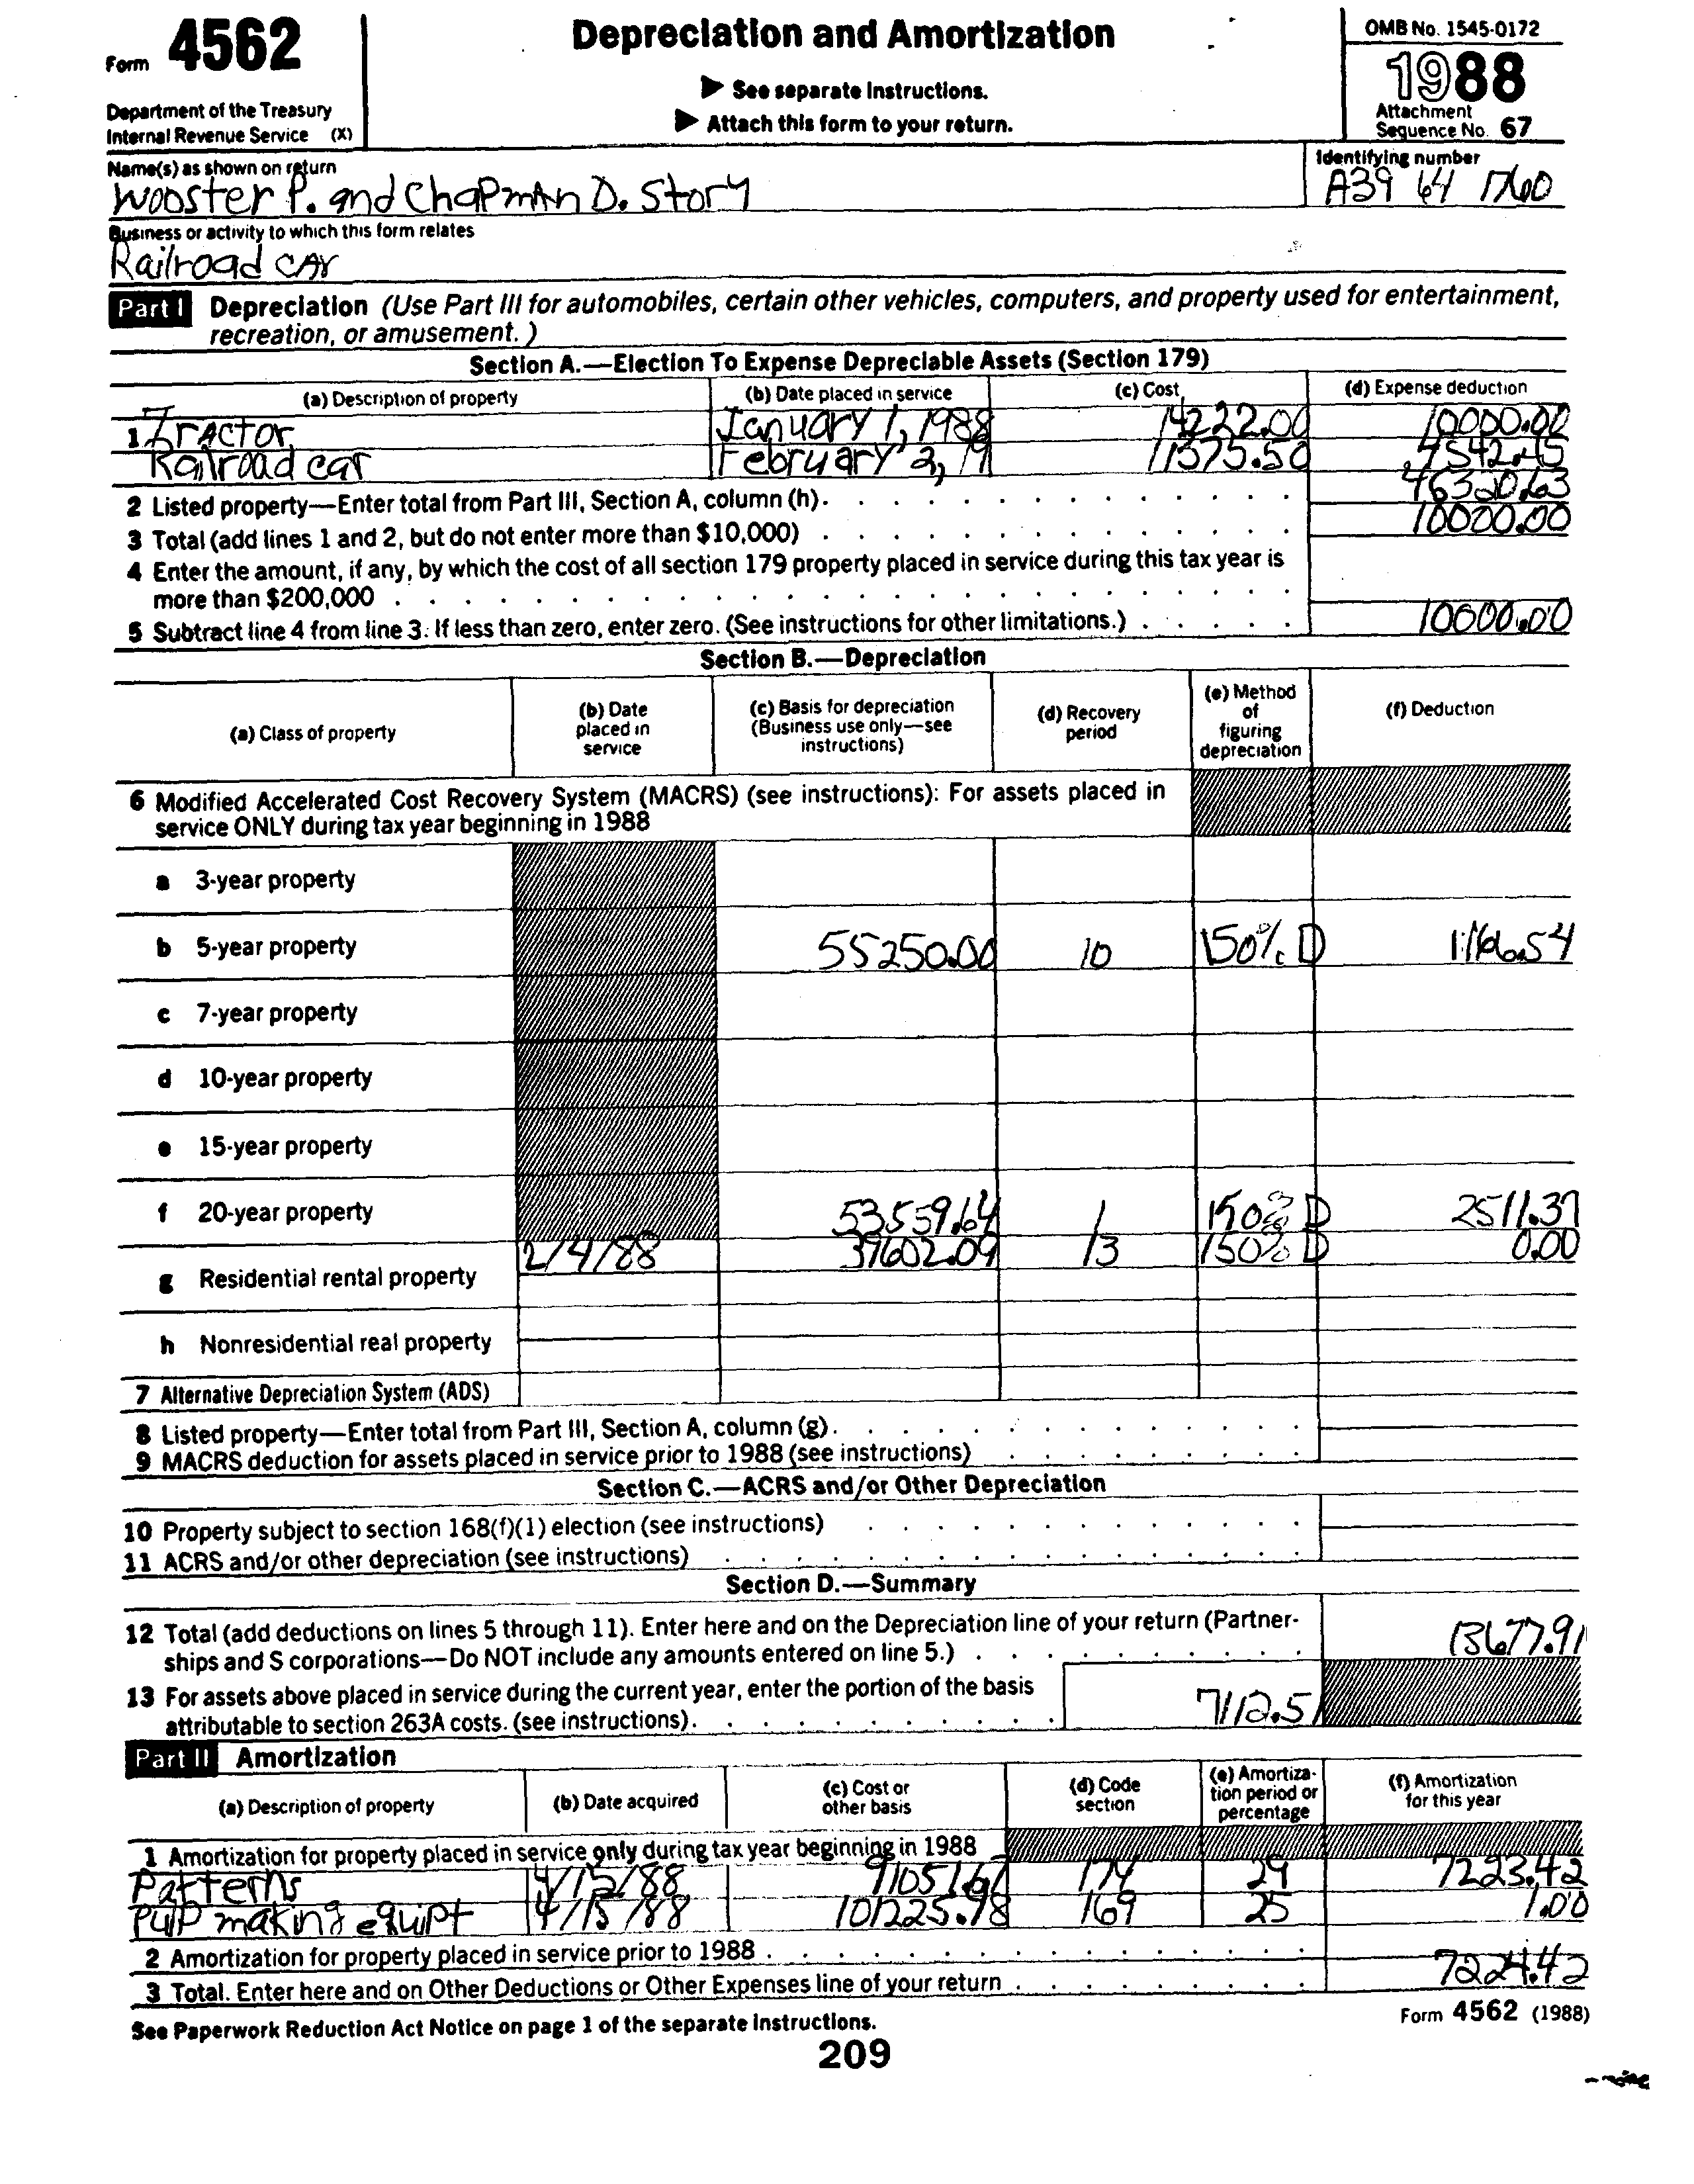 Form 4562
Department of the Treasury
Internal Revenue Service (X)
Depreciation and Amortization
▶ See separate instructions.
▶ Attach this form to your return.
OMB No. 1545-0172
1988
Attachment
Sequence No. 67
Name(s) as shown on return
Wooster P. and Chapman D. Story
Identifying number
A39 64
Business or activity to which this form relates
Railroad car
Part I Depreciation (Use Part III for automobiles, certain other vehicles, computers, and property used for entertainment,
recreation, or amusement.)
Section A.—Election To Expense Depreciable Assets (Section 179)
(a) Description of property (b) Date placed in service (c) Cost (d) Expense deduction
1 Tractor January 1, 1988 14222.00 10000.00
Railroad car February 2, 19 11375.50 4542.45
2 Listed property—Enter total from Part III, Section A, column (h). 46320.63
3 Total (add lines 1 and 2, but do not enter more than $10,000) 10000.00
4 Enter the amount, if any, by which the cost of all section 179 property placed in service during this tax year is
more than $200,000
5 Subtract line 4 from line 3. If less than zero, enter zero. (See instructions for other limitations.) 10000.00
Section B.—Depreciation
(a) Class of property (b) Date placed in service (c) Basis for depreciation (Business use only—see instructions) (d) Recovery period (e) Method of figuring depreciation (f) Deduction
6 Modified Accelerated Cost Recovery System (MACRS) (see instructions): For assets placed in
service ONLY during tax year beginning in 1988
a 3-year property
b 5-year property 55250.00 10 150% D 1166.54
c 7-year property
d 10-year property
e 15-year property
f 20-year property 53559.64 1 150% D 2511.37
2/4/88 39602.09 13 150% D 0.00
g Residential rental property
h Nonresidential real property
7 Alternative Depreciation System (ADS)
8 Listed property—Enter total from Part III, Section A, column (g).
9 MACRS deduction for assets placed in service prior to 1988 (see instructions)
Section C.—ACRS and/or Other Depreciation
10 Property subject to section 168(f)(1) election (see instructions)
11 ACRS and/or other depreciation (see instructions)
Section D.—Summary
12 Total (add deductions on lines 5 through 11). Enter here and on the Depreciation line of your return (Partner-
ships and S corporations—Do NOT include any amounts entered on line 5.) 13677.91
13 For assets above placed in service during the current year, enter the portion of the basis
attributable to section 263A costs. (see instructions). 7112.51
Part II Amortization
(a) Description of property (b) Date acquired (c) Cost or other basis (d) Code section (e) Amortiza- tion period or percentage (f) Amortization for this year
1 Amortization for property placed in service only during tax year beginning in 1988
Patterns 4/15/88 174 29 7223.42
Pulp making equipt 4/15/88 101225.98 169 25 1.00
2 Amortization for property placed in service prior to 1988
3 Total. Enter here and on Other Deductions or Other Expenses line of your return 7224.42
See Paperwork Reduction Act Notice on page 1 of the separate instructions.
Form 4562 (1988)
209